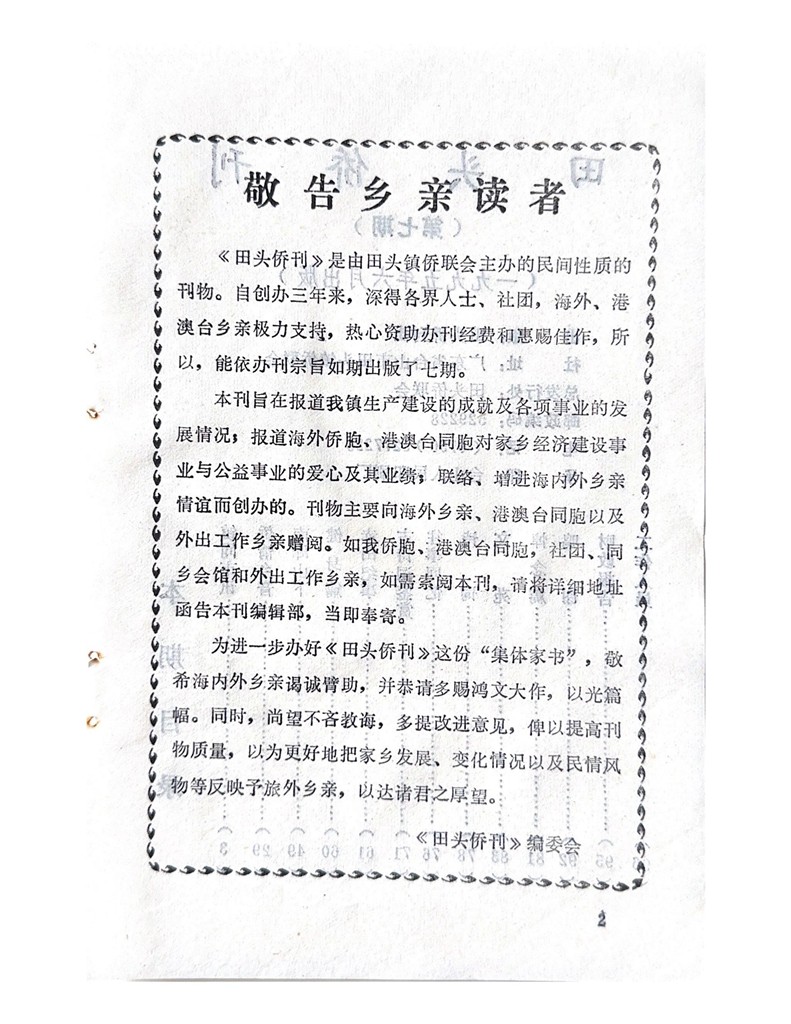 敬告乡亲读者
《田头侨刊》是由田头镇侨联会主办的民间性质的
刊物。自创办三年来，深得各界人士、社团，海外、港
澳台乡亲极力支持，热心资助办刊经费和惠赐佳作，所
以，能依办刊宗旨如期出版了七期。
本刊旨在报道我镇生产建设的成就及各项事业的发
展情况；报道海外侨胞、港澳台同胞对家乡经济建设事
业与公益事业的爱心及其业绩；联络、增进海内外乡亲
情谊而创办的。刊物主要向海外乡亲、港澳台同胞以及
外出工作乡亲赠阅。如我侨胞、港澳台同胞，社团、同
乡会馆和外出工作乡亲，如需索阅本刊，请将详细地址
函告本刊编辑部，当即奉寄。
为进一步办好《田头侨刊》这份“集体家书”，敬
希海内外乡亲竭诚臂助，并恭请多赐鸿文大作，以光篇
幅。同时，尚望不吝教诲，多提改进意见，俾以提高刊
物质量，以为更好地把家乡发展、变化情况以及民情风
物等反映予旅外乡亲，以达诸君之厚望。
《田头侨刊》编委会
2